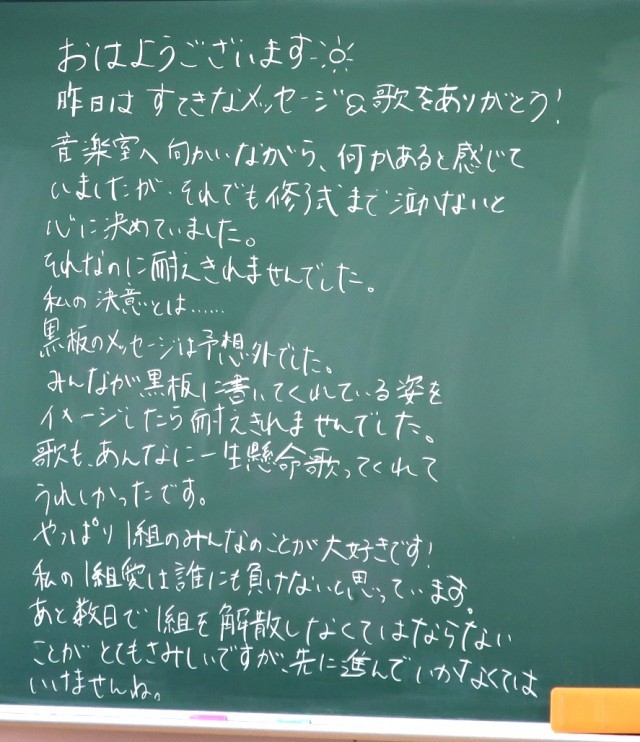 おはようございます
昨日は すてきなメッセージ&歌をありがとう!
音楽室へ向かいながら、何かあると感じて
いましたが、それでも修了式まで泣かないと
心に決めていました。
それなのに耐えきれませんでした。
私の決意とは……
黒板のメッセージは予想外でした。
みんなが黒板に書いてくれている姿を
イメージしたら耐えきれませんでした。
歌も、あんなに一生懸命歌ってくれて
うれしかったです。
やっぱり1組のみんなのことが大好きです!
私の1組愛は誰にも負けないと思っています。
あと数日で1組を解散しなくてはならない
ことがとてもさみしいですが、先に進んでいかなくては
いけませんね。